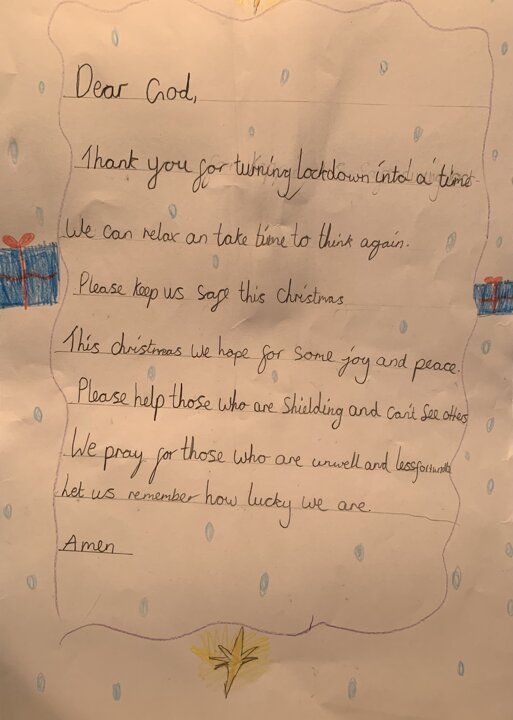 Dear God,
Thank you for turning lockdown into a time
We can relax an take time to think again.
Please keep us safe this Christmas
This christmas we hope for some joy and peace.
Please help those who are shielding and can't see others
We pray for those who are unwell and less fortunate
Let us remember how lucky we are.
Amen